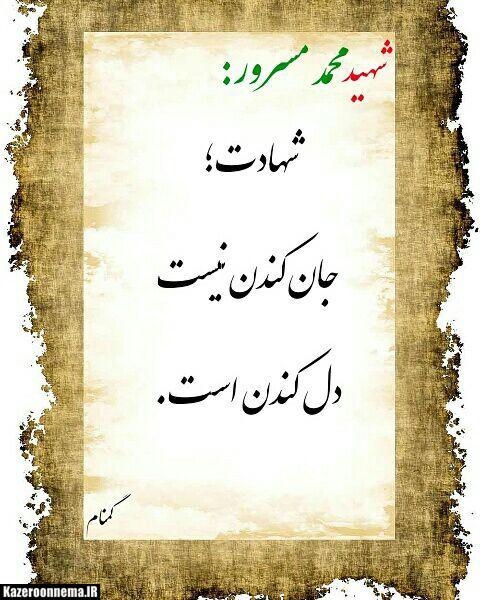 شهید محمد مسرور:
شهادت؛
جان کندن نیست
دل کندن است.
گمنام
Kazeroonnema.IR